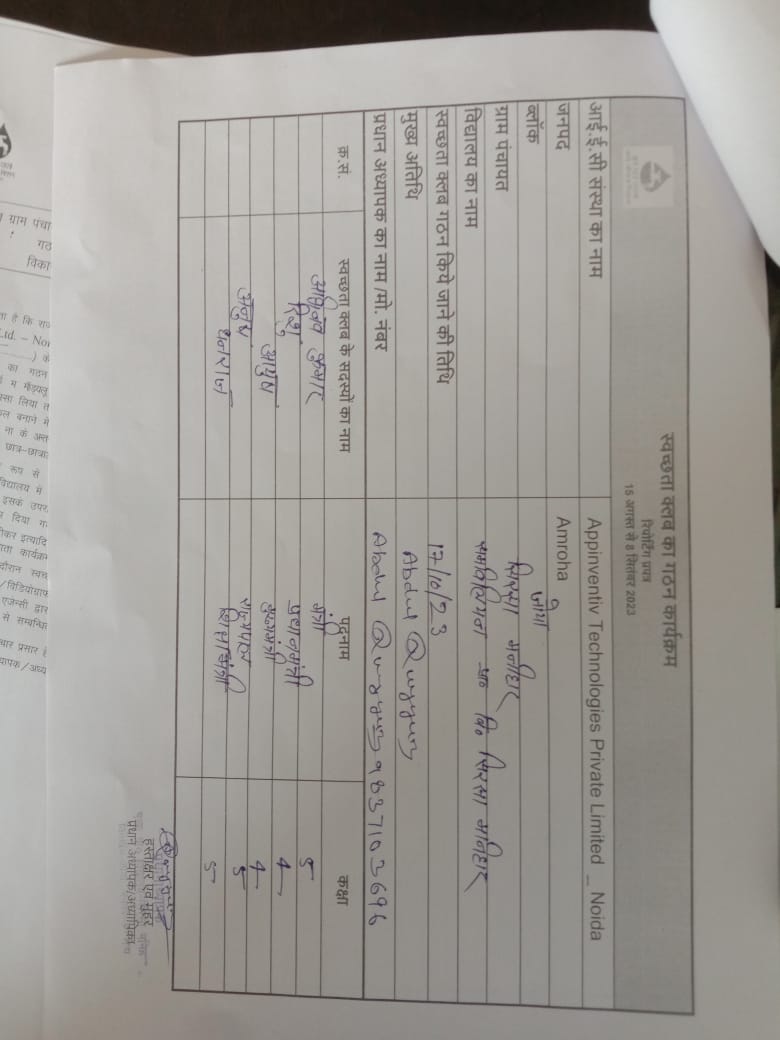 स्वच्छता क्लब का गठन कार्यक्रम
रिपोर्टिंग प्रपत्र
15 अगस्त से 8 सितंबर 2023
आई.ई.सी संस्था का नाम Appinventiv Technologies Private Limited _ Noida
जनपद Amroha
ब्लॉक जोया
ग्राम पंचायत सिरसा मनिहार
विद्यालय का नाम सिरसा मनिहार
स्वच्छता क्लब गठन किये जाने की तिथि 17/10/23
मुख्य अतिथि Abdul Quyyum
प्रधान अध्यापक का नाम/मो. नंबर Abdul Quyyum 9837103696
क्र.सं. स्वच्छता क्लब के सदस्यों का नाम पदनाम कक्षा
कुमार मंत्री 5
रिशु प्रधानमंत्री 4
आयुष 4
अनुष 5
धनराज 5
हस्ताक्षर एवं मुहर
प्रधान अध्यापक/अध्यापिका
ग्राम पंचा
गठ
विका
ता है कि राज
Ltd. – Noi
का गठन
सा लिया त
ल बनाने में
ना के अन्त
छात्र–छात्रा
रूप से
विद्यालय में
इसके उपर
दिया ग
ीकर इत्यादि
ता कार्यक्र
दौरान स्वच
/विडियोग्राफ
एजेन्सी द्वार
से सम्बन्धि
चार प्रसार ह
यापक/अध्य